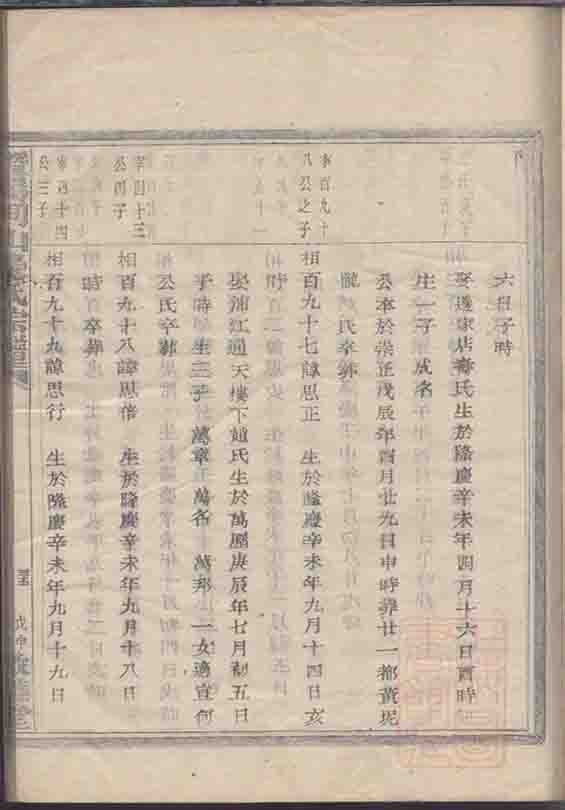 六日子時
娶邊家店壽氏生於隆慶辛未年四月十六日酉時
生一子 成名
公卒於崇正戊辰年四月廿九日申時葬廿一都黃坭
隴 氏卒葬
本百九十
八公之子
相百九十七諱思正 生於隆慶辛未年九月十四日亥
時
娶浦江通天樓下趙氏生於萬曆庚辰年七月初五日
子時 生三子 萬章 萬名 萬邦 一女適宣何
公氏卒葬
宰四十三
公四子
相百九十八諱思倍 生於隆慶辛未年九月十八日
時 卒葬
宰四十四
公三子
相百九十九諱思行 生於隆慶辛未年九月十九日
氏宗譜
戊申